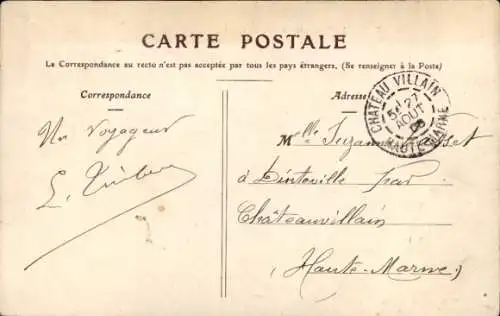 CARTE POSTALE
La Correspondance au recto n'est pas acceptée par tous les pays étrangers. (Se renseigner à la Poste)
Correspondance
Adresse
CHATEAU VILLAIN
27
AOUT
HAUTE-MARNE
Un voyageur
Mlle Suzanne
à Dinteville par
Châteauvillain
(Haute-Marne)